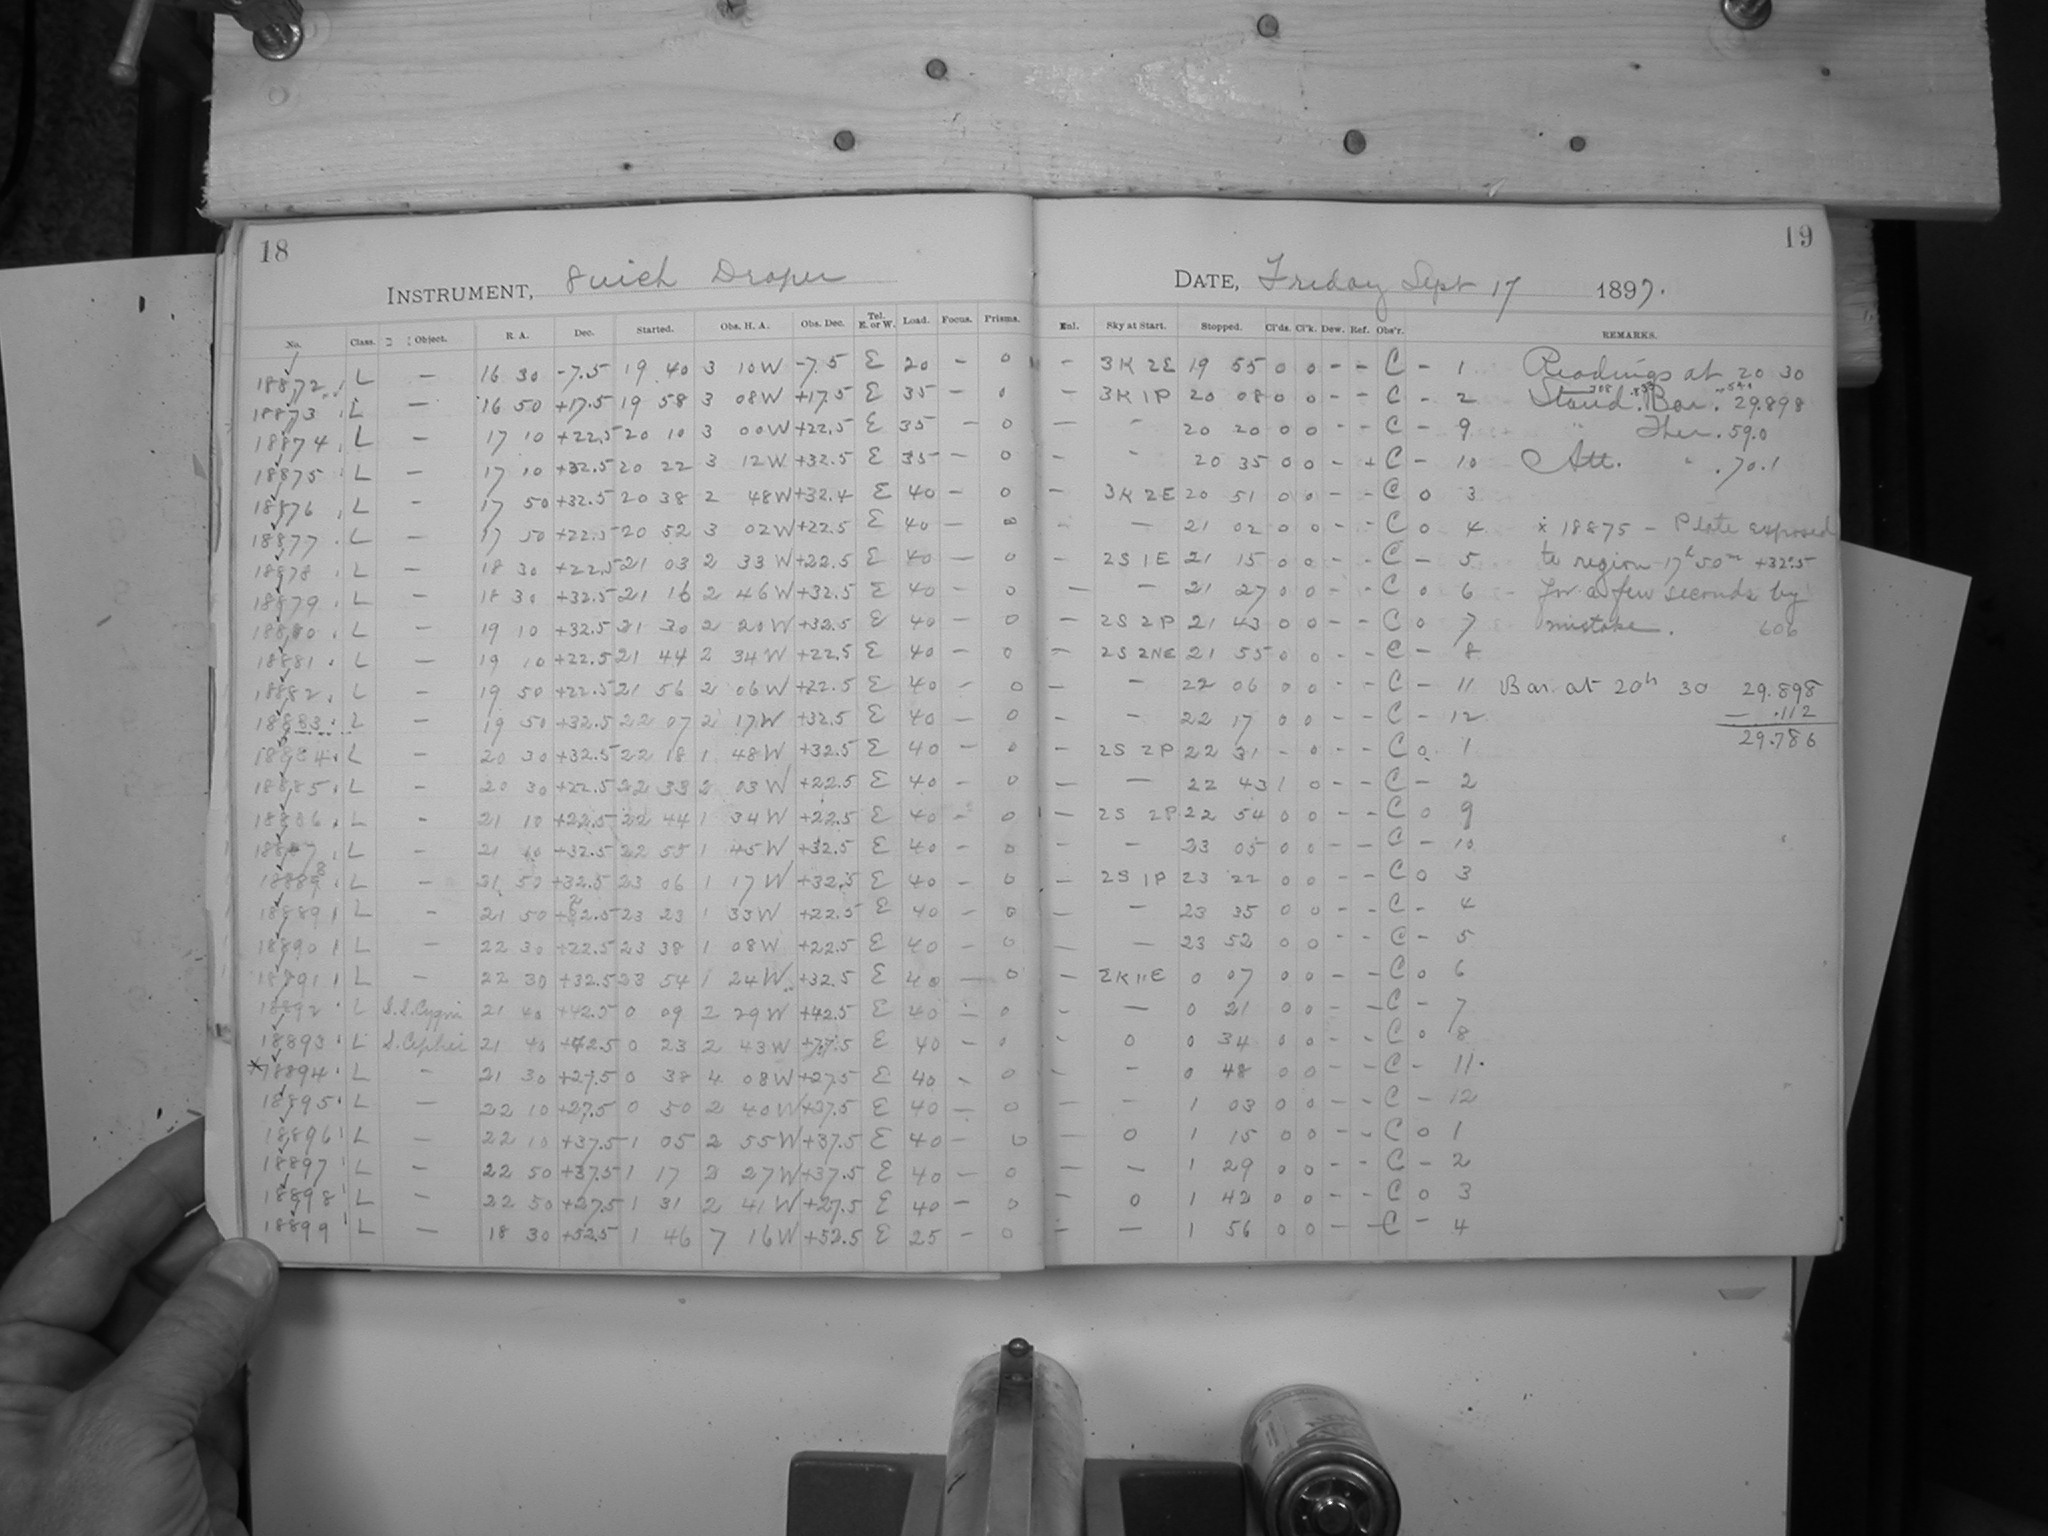 18 19
INSTRUMENT, 8 inch Draper DATE, Friday Sept 17 1897.
No. Class. Object. R. A. Dec. Started. Obs. H. A. Obs. Dec. Tel. E. or W. Load. Focus. Prisms. Enl. Sky at Start. Stopped. Cl'ds. Cl'k. Dew. Ref. Obs'r. REMARKS.
18872 L — 16 30 -7.5 19 40 3 10W -7.5 E 20 - 0 - 3K 2E 19 55 0 0 - - C - 1 Readings at 20 30
18873 L — 16 50 +17.5 19 58 3 08W +17.5 E 35 - 0 - 3K 1P 20 08 0 0 - - C - 2 Stand. Bar. 29.898
18874 L — 17 10 +22.5 20 10 3 00W +22.5 E 35 - 0 - " 20 20 0 0 - - C - 9 " Ther. 59.0
18875 L — 17 10 +32.5 20 22 3 12W +32.5 E 35 - 0 - " 20 35 0 0 - + C - 10 Att. " .70.1
18876 L — 17 50 +32.5 20 38 2 48W +32.4 E 40 - 0 - 3K 2E 20 51 0 0 - - C 0 3
18877 L — 17 50 +22.5 20 52 3 02W +22.5 E 40 - 0 - — 21 02 0 0 - - C 0 4 x 18875 - Plate exposed
18878 L — 18 30 +22.5 21 03 2 33W +22.5 E 40 - 0 - 2S 1E 21 15 0 0 - - C - 5 to region 17h 50m +32.5
18879 L — 18 30 +32.5 21 16 2 46W +32.5 E 40 - 0 - — 21 27 0 0 - - C 0 6 for a few seconds by
18880 L — 19 10 +32.5 21 30 2 20W +32.5 E 40 - 0 - 2S 2P 21 43 0 0 - - C 0 7 mistake. 606
18881 L — 19 10 +22.5 21 44 2 34W +22.5 E 40 - 0 - 2S 2NE 21 55 0 0 - - C - 8
18882 L — 19 50 +22.5 21 56 2 06W +22.5 E 40 - 0 - — 22 06 0 0 - - C - 11 Bar. at 20h 30 29.898
18883 L — 19 50 +32.5 22 07 2 17W +32.5 E 40 - 0 - — 22 17 0 0 - - C - 12 - .112
18884 L — 20 30 +32.5 22 18 1 48W +32.5 E 40 - 0 - 2S 2P 22 31 - 0 - - C 0 1 29.786
18885 L — 20 30 +22.5 22 33 2 03W +22.5 E 40 - 0 - — 22 43 1 0 - - C - 2
18886 L — 21 10 +22.5 22 44 1 34W +22.5 E 40 - 0 - 2S 2P 22 54 0 0 - - C 0 9
18887 L — 21 10 +32.5 22 55 1 45W +32.5 E 40 - 0 - — 23 05 0 0 - - C - 10
18888 L — 21 50 +32.5 23 06 1 17W +32.5 E 40 - 0 - 2S 1P 23 22 0 0 - - C 0 3
18889 L — 21 50 +22.5 23 23 1 33W +22.5 E 40 - 0 - — 23 35 0 0 - - C - 4
18890 L — 22 30 +22.5 23 38 1 08W +22.5 E 40 - 0 - — 23 52 0 0 - - C - 5
18891 L — 22 30 +32.5 23 54 1 24W +32.5 E 40 - 0 - 2K 1E 0 07 0 0 - - C 0 6
18892 L S.S. Cygni 21 40 +42.5 0 09 2 29W +42.5 E 40 - 0 - — 0 21 0 0 - - C - 7
18893 L S. Cephei 21 40 0 23 2 43W E 40 - 0 - 0 0 34 0 0 - - C 0 8
*18894 L — 21 30 +27.5 0 38 4 08W +27.5 E 40 - 0 - - 0 48 0 0 - - C - 11.
18895 L — 22 10 +27.5 0 50 2 40W E 40 - 0 - - 1 03 0 0 - - C - 12
18896 L — 22 10 +37.5 1 05 2 55W +37.5 E 40 - 0 - 0 1 15 0 0 - - C 0 1
18897 L — 22 50 +37.5 1 17 2 27W +37.5 E 40 - 0 - — 1 29 0 0 - - C - 2
18898 L — 22 50 +27.5 1 31 2 41W +27.5 E 40 - 0 - 0 1 42 0 0 - - C 0 3
18899 L — 18 30 +52.5 1 46 7 16W +52.5 E 25 - 0 - — 1 56 0 0 - - C - 4